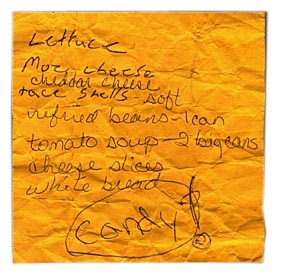 Lettuce
Moz. cheese
cheddar cheese
taco shells - soft
refried beans - 1 can
tomato soup - 2 big cans
cheese slices
white bread
candy!